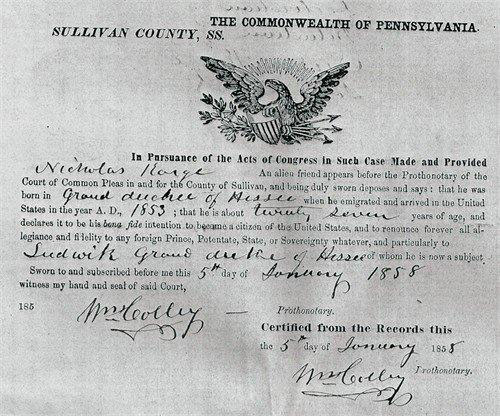 THE COMMONWEALTH OF PENNSYLVANIA.
SULLIVAN COUNTY, SS.
In Pursuance of the Acts of Congress in Such Case Made and Provided
Nicholas Karge An alien friend appears before the Prothonotary of the
Court of Common Pleas in and for the County of Sullivan, and being duly sworn deposes and says: that he was
born in Grand dutchee of Hessee when he emigrated and arrived in the United
States in the year A. D., 1853; that he is about twenty seven years of age, and
declares it to be his bona fide intention to become a citizen of the United States, and to renounce forever all al-
legiance and fidelity to any foreign Prince, Potentate, State, or Sovereignty whatever, and particularly to
Ludwik Grand dutke of Hessee of whom he is now a subject.
Sworn to and subscribed before me this 5th day of January 1858
witness my hand and seal of said Court,
185 Wm Colley — Prothonotary.
Certified from the Records this
the 5th day of January 1858
Wm Colley Prothonotary.